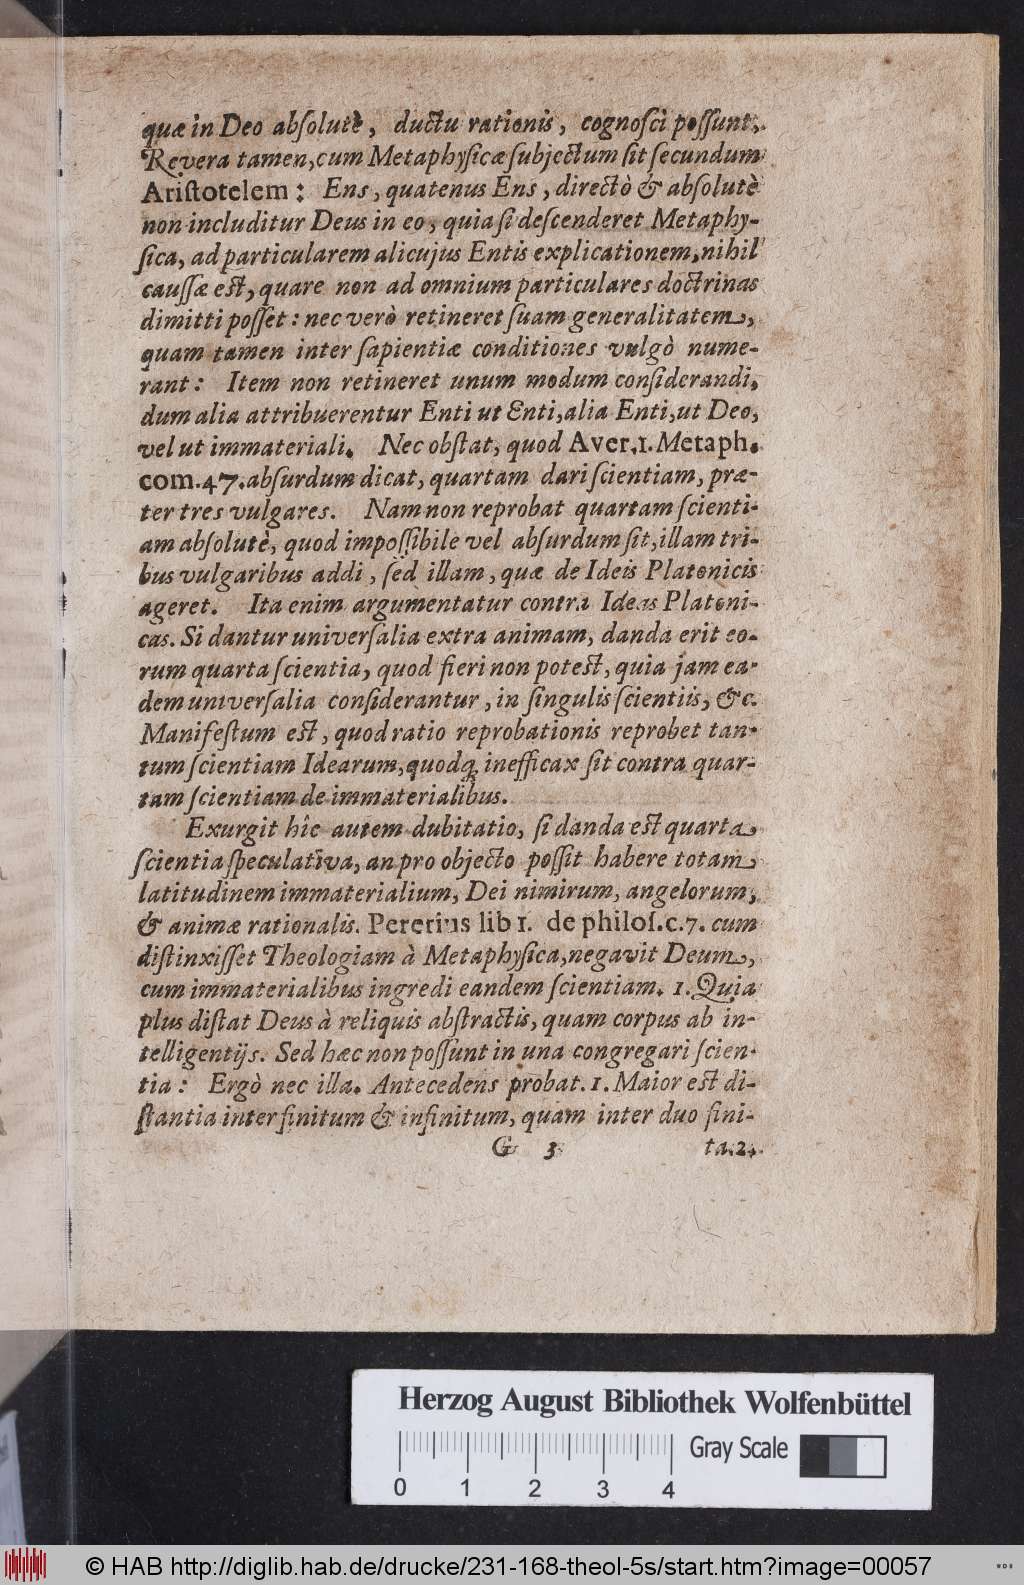 quæ in Deo absolutè, ductu rationis, cognosci possunt.
Revera tamen, cum Metaphysicæ subjectum sit secundum
Aristotelem: Ens, quatenus Ens, directò & absolutè
non includitur Deus in eo, quia si descenderet Metaphy-
sica, ad particularem alicujus Entis explicationem, nihil
caussæ est, quare non ad omnium particulares doctrinas
dimitti posset: nec verò retineret suam generalitatem,
quam tamen inter sapientiæ conditiones vulgò nume-
rant: Item non retineret unum modum considerandi,
dum alia attribuerentur Enti ut Enti, alia Enti, ut Deo,
vel ut immateriali. Nec obstat, quod Aver. 1. Metaph.
com. 47. absurdum dicat, quartam dari scientiam, præ-
ter tres vulgares. Nam non reprobat quartam scienti-
am absolutè, quod impossibile vel absurdum sit, illam tri-
bus vulgaribus addi, sed illam, quæ de Ideis Platonicis
ageret. Ita enim argumentatur contra Ideas Platoni-
cas. Si dantur universalia extra animam, danda erit eo-
rum quarta scientia, quod fieri non potest, quia jam ea-
dem universalia considerantur, in singulis scientiis, &c.
Manifestum est, quod ratio reprobationis reprobet tan-
tum scientiam Idearum, quodq; inefficax sit contra quar-
tam scientiam de immaterialibus.
Exurgit hîc autem dubitatio, si danda est quarta
scientia speculativa, an pro objecto possit habere totam
latitudinem immaterialium, Dei nimirum, angelorum,
& animæ rationalis. Pererius lib 1. de philos. c. 7. cum
distinxisset Theologiam à Metaphysica, negavit Deum,
cum immaterialibus ingredi eandem scientiam. 1. Quia
plus distat Deus à reliquis abstractis, quam corpus ab in-
telligentijs. Sed hæc non possunt in una congregari scien-
tia: Ergò nec illa. Antecedens probat. 1. Maior est di-
stantia inter finitum & infinitum, quam inter duo fini-
G 3 ta. 2.
Herzog August Bibliothek Wolfenbüttel
Gray Scale
0 1 2 3 4
© HAB http://diglib.hab.de/drucke/231-168-theol-5s/start.htm?image=00057